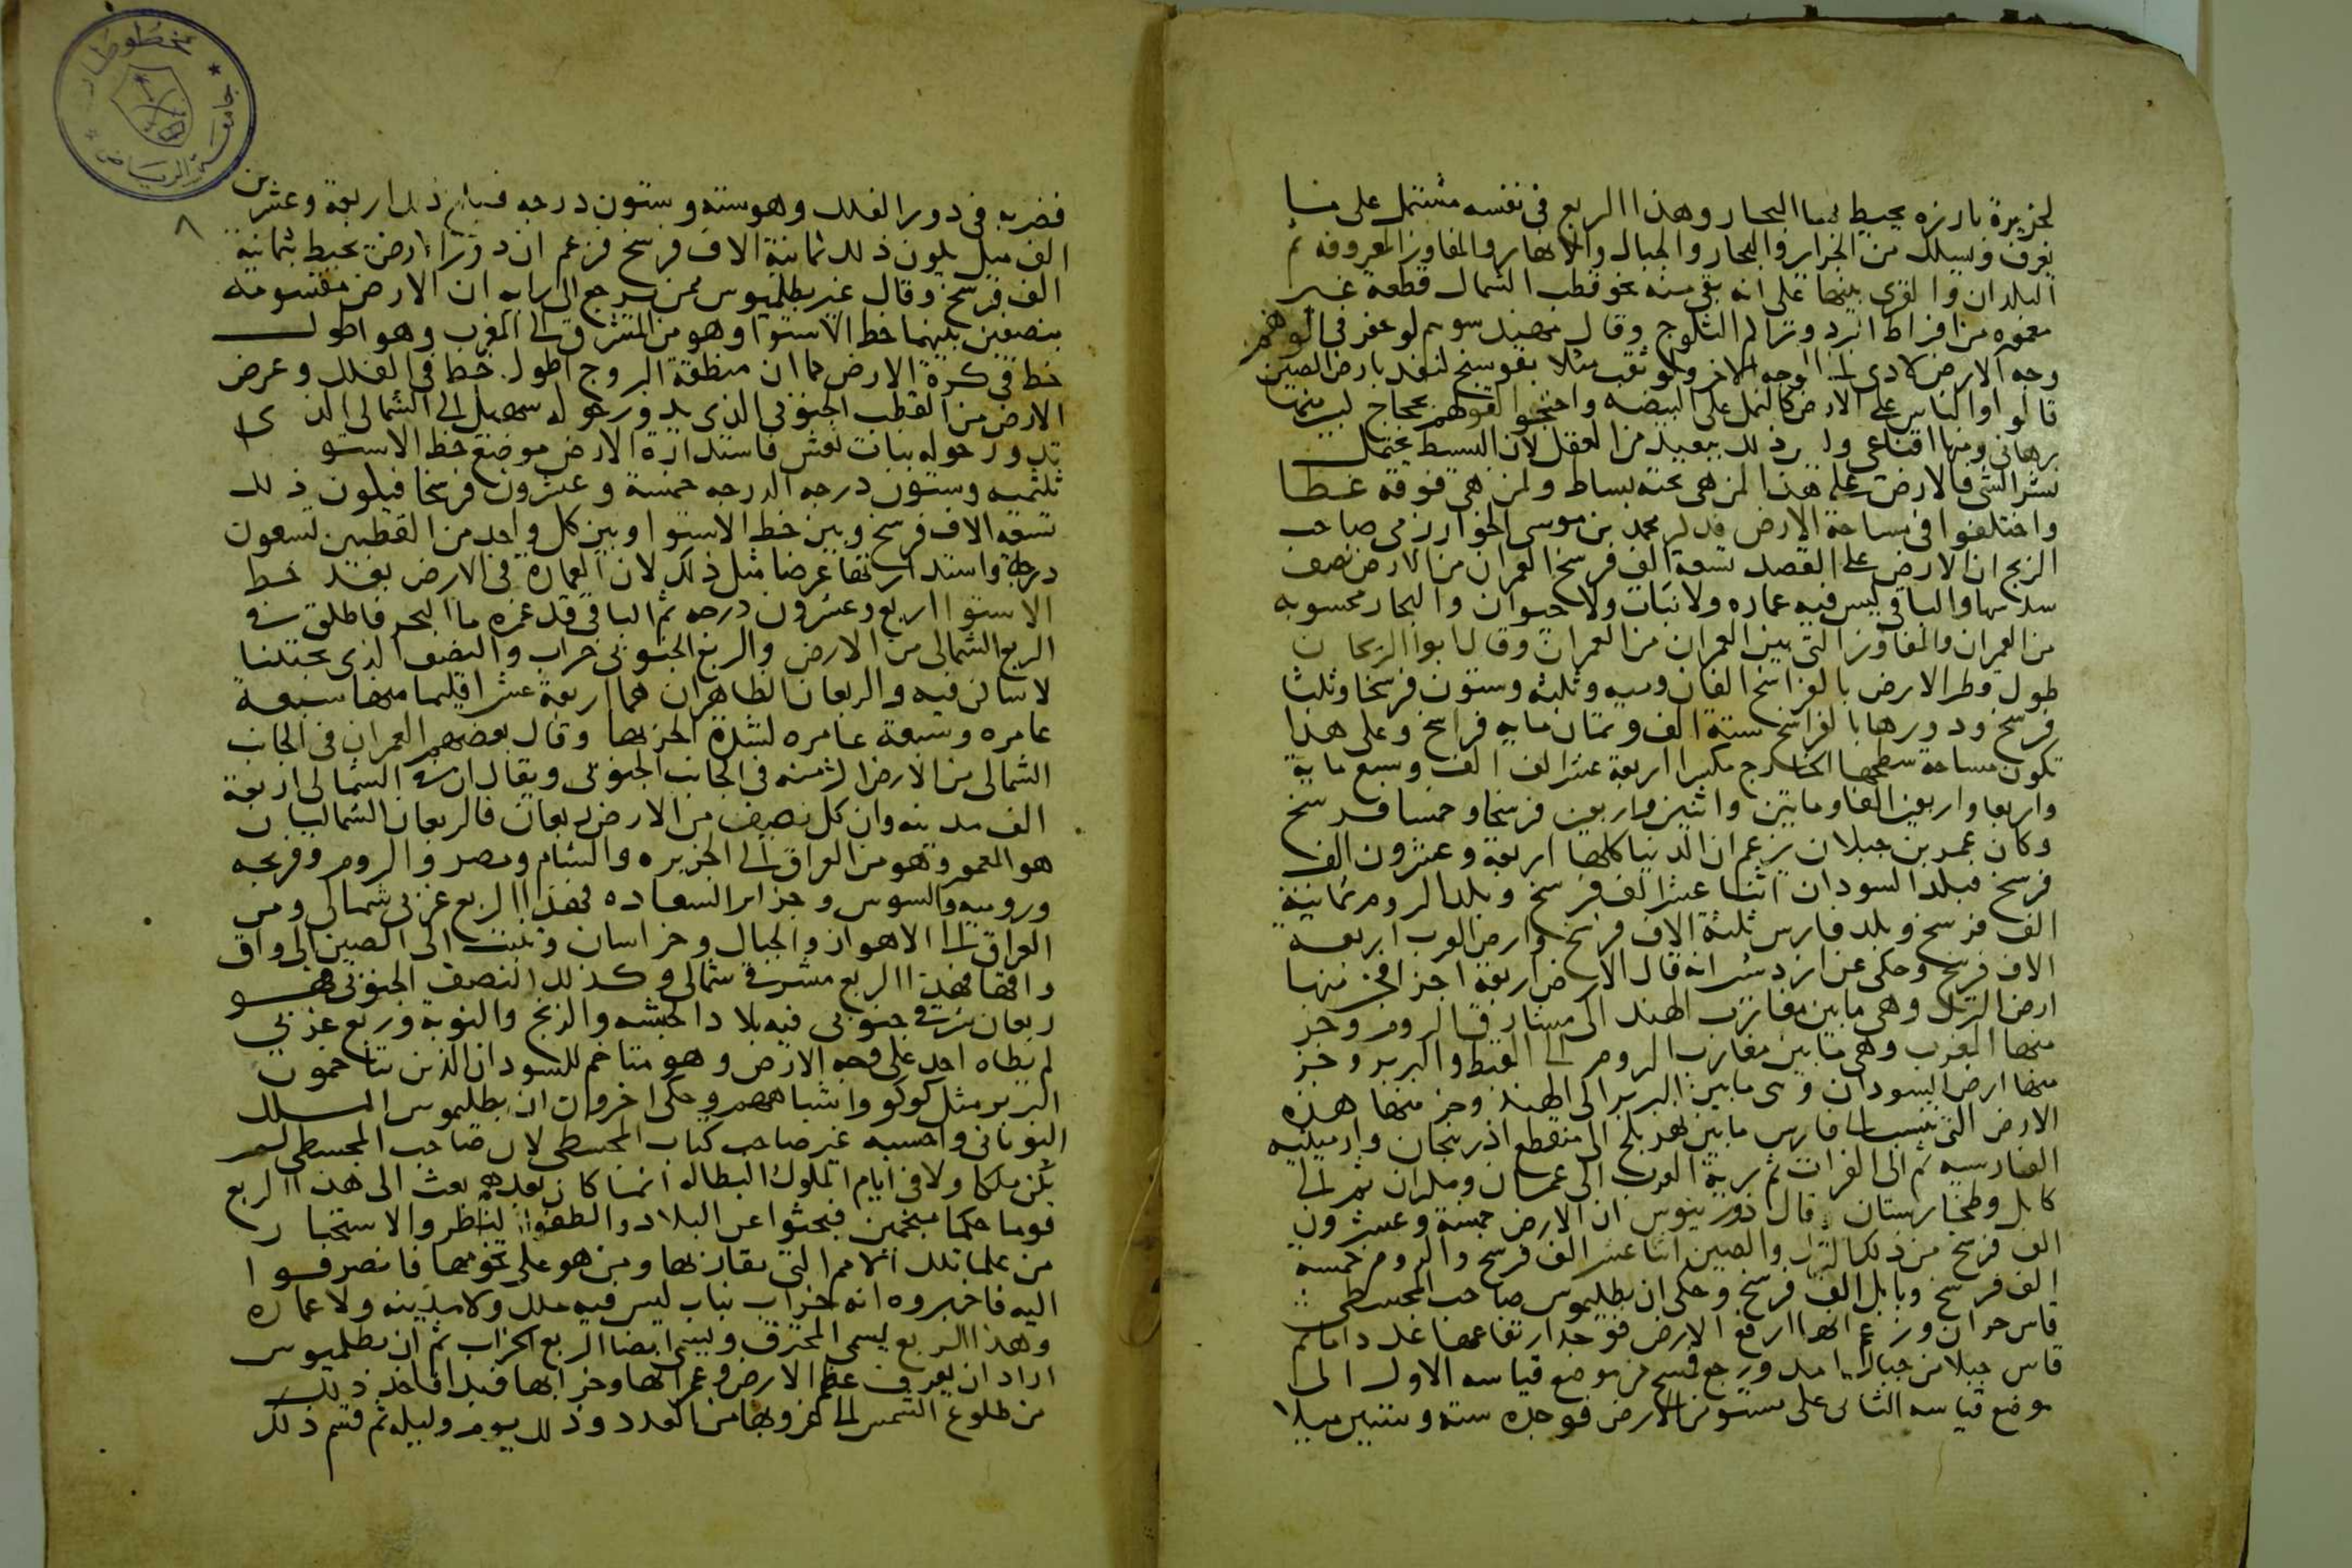 لجزيرة بارزه يحيط بها البحار وهذا الربع فى نفسه مشتمل على ما
يعرف ويسلك من الجزاير والبحار والجبال والانهار والمفاوز المعروفه ثم
البلدان والقرى بينها على انه بقى منه نحو قطب الشمال قطعة غير
معموره من افراط البرد وتراكم الثلوج وقال مهندسوهم لو حفر فى الوهم
وجه الارض لادى الى الوجه الاخر ولو ثقب مثلا بفوسنج لنفد بارض الصين
قالوا والناس على الارض كالنمل على البيضه واحتجوا لقولهم بحجاج ليس منها
برهانى ومنها اقناعى وليس ذلك ببعيد من العقل لان البسط يحتمل
نشر الشى فالارض على هذا لمن هى تحته بساط ولمن هى فوقه غطا
واختلفوا فى مساحة الارض فذكر محمد بن موسى الخوارزمى صاحب
الزيج ان الارض على القصد تسعة الف فرسخ العمران من الارض نصف
سدسها والباقى ليس فيه عماره ولا نبات ولا حيوان والبحار محسوبه
من العمران والمفاوز التى بين العمران من العمران وقال ابوا الريحان
طول قطر الارض بالفراسخ الفان وميه وثلثه وستون فرسخا وثلثا
فرسخ ودورها بالفراسخ ستة الف وثمان مايه فراسخ وعلى هذا
تكون مساحة سطحها الخارج مكسرا اربعة عشر الف الف وسبع ماية
واربعا واربعين الفا ومايتين واثنين واربعين فرسخا وخمسا فرسخ
وكان عمر بن جيلان يزعم ان الدنيا كلها اربعة وعشرون الف
فرسخ فبلد السودان اثنا عشر الف فرسخ وبلد الروم ثمانية
الف فرسخ وبلد فارس ثلثة الاف فرسخ وارض العرب اربعه
الاف فرسخ وحكى عن ازدشير انه قال الارض اربعة اجزا فجز منها
ارض الترك وهى ما بين مغارب الهند الى مشارق الروم وجز
منها المغرب وهى ما بين مغارب الروم الى القبط والبربر وجز
منها ارض السودان وهى ما بين البربر الى الهند وجز منها هذه
الارض التى تنسب الى فارس ما بين نهر بلخ الى منقطع اذربيجان وارمينيه
الفارسيه ثم الى الفرات ثم برية العرب الى عمان ومكران ثم الى
كابل وطخارستان وقال دورينوس ان الارض خمسة وعشرون
الف فرسخ من ذلك الترك والصين اثنا عشر الف فرسخ والروم خمسه
الف فرسخ وبابل الف فرسخ وحكى ان بطليموس صاحب المجسطى
قاس حران وزعم انها ارفع الارض فوجد ارتفاعها عدداما ثم
قاس جبلا من جبال امد ورجع فمسح من موضع قياسه الاول الى
موضع قياسه الثانى على مستو من الارض فوجده ستة وستين ميلا
فضربه فى دور الفلك وهو ستة وستون درجه فبلغ ذلك اربعة وعشرين
الف ميل يكون ذلك ثمانية الاف فرسخ فزعم ان دور الارض تحيط بثمانية
الف فرسخ وقال غير بطلميوس ممن يرجع الى رايه ان الارض مقسومه
بنصفين بينهما خط الاستوا وهو من المشرق الى المغرب وهو اطول
خط فى كرة الارض كما ان منطقة البروج اطول خط فى الفلك وعرض
الارض من القطب الجنوبى الذى يدور حوله سهيل الى الشمالى الذى
تدور حوله بنات نعش فاستدارة الارض موضع خط الاستوا
ثلثميه وستون درجه الدرجه خمسة وعشرون فرسخا فيكون ذلك
تسعه الاف فرسخ وبين خط الاستوا وبين كل واحد من القطبين تسعون
درجه واستدارتها عرضا مثل ذلك لان العمارة فى الارض بعد خط
الاستوا اربع وعشرون درجه ثم الباقى قد غمره ما البحر فالخلق فى
الربع الشمالى من الارض والربع الجنوبى خراب والنصف الذى تحتنا
لا ساكن فيه والربعان الظاهران هما اربعة عشر اقليما منها سبعة
عامره وسبعة غامره لشدة الحر بها وقال بعضهم العمران فى الجانب
الشمالى من الارض اكثر منه فى الجانب الجنوبى ويقال ان فى الشمالى اربعة
الف مدينه وان كل نصف من الارض ربعان فالربعان الشماليان
هو المعمور وهو من العراق الى الجزيره والشام ومصر والروم وفرنجه
وروميه والسوس وجزاير السعاده فهذا الربع غربى شمالى ومن
العراق الى الاهواز والجبال وخراسان وتبت الى الصين الى واق
واقها فهذا الربع مشرقى شمالى وكذلك النصف الجنوبى هو
ربعان شرقى جنوبى فيه بلاد الحبشه والزنج والنوبة وربع غربى
لم يطاه احد على وجه الارض وهو متاخم للسودان الذين يتاخمون
البربر مثل كوكو واشباههم وحكى اخرون ان بطليموس الملك
اليونانى واحسبه غير صاحب كتاب المجسطى لان صاحب المجسطى لم
يكن ملكا ولا فى ايام الملوك البطاله انما كان بعدهم بعث الى هذا الربع
قوما حكما منجمين فبحثوا عن البلاد والطفوا النظر والاستخبار
من علما تلك الامم التى تقاربها ومن هو على تخومها فانصرفوا
اليه فاخبروه انه خراب يباب ليس فيه ملك ولا مدينه ولا عماره
وهذا الربع يسمى المحترق ويسمى ايضا الربع الخراب ثم ان بطلميوس
اراد ان يعرف عظم الارض وعمرانها وخرابها فبدا فاخذ ذلك
من طلوع الشمس الى غروبها من العدد وذلك يوم وليله ثم قسم ذلك
٨
مخطوطات
جامعة الرياض